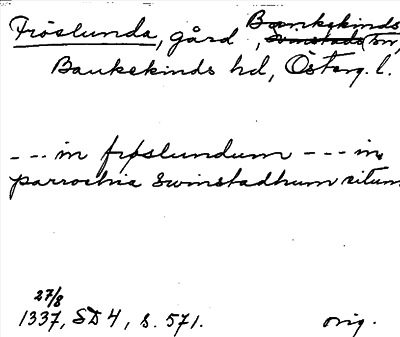 Fröslunda, gård, Bankekinds sn,
Bankekinds hd, Österg. l.
--- in frøslundum --- in
parrochia Swinstadhum situm
27/8
1337, SD 4, s. 571.
orig.